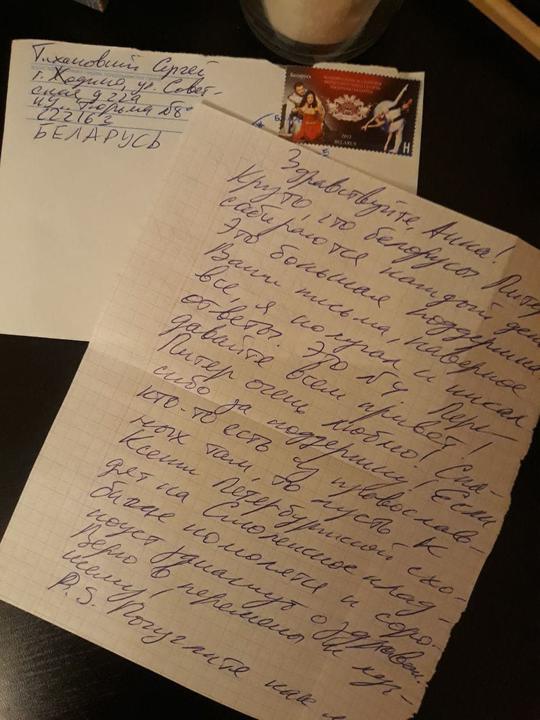 Тихановский Сергей
г. Жодино, ул. Совет-
ская д 22а
Тюрьма №8
222162
БЕЛАРУСЬ
H
2013
BELARUS
Здравствуйте, Анна!
Круто, что белорусы Питер
собираются каждый ден
Это большая поддержка
Ваши письма, наверное
все, я получал и писал
ответы. Это № 4. Пере-
давайте всем привет!
Питер очень люблю! Спа-
сибо за поддержку! Если
кто-то есть из православ-
ных там, то пусть к
Ксении Петербуржской схо-
дят на Смоленское клад-
бище помолятся и соро-
коуст о здравии.
Верю в перемены к луч-
шему!
P. S.